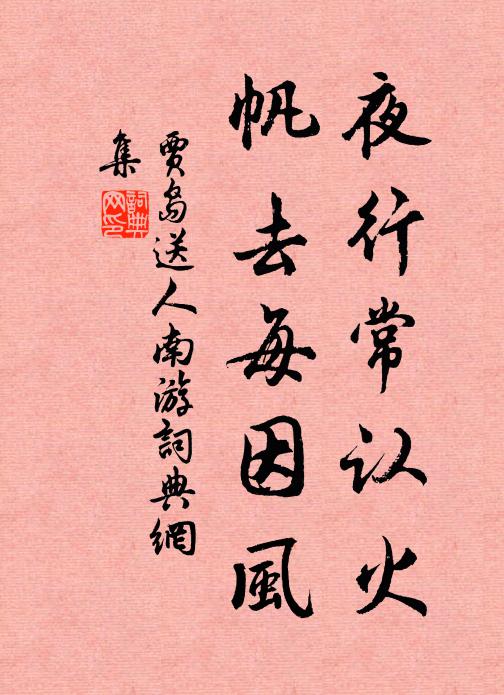 夜行常认火
帆去每因風
賈島送人南游詞典網
集
詞典网印